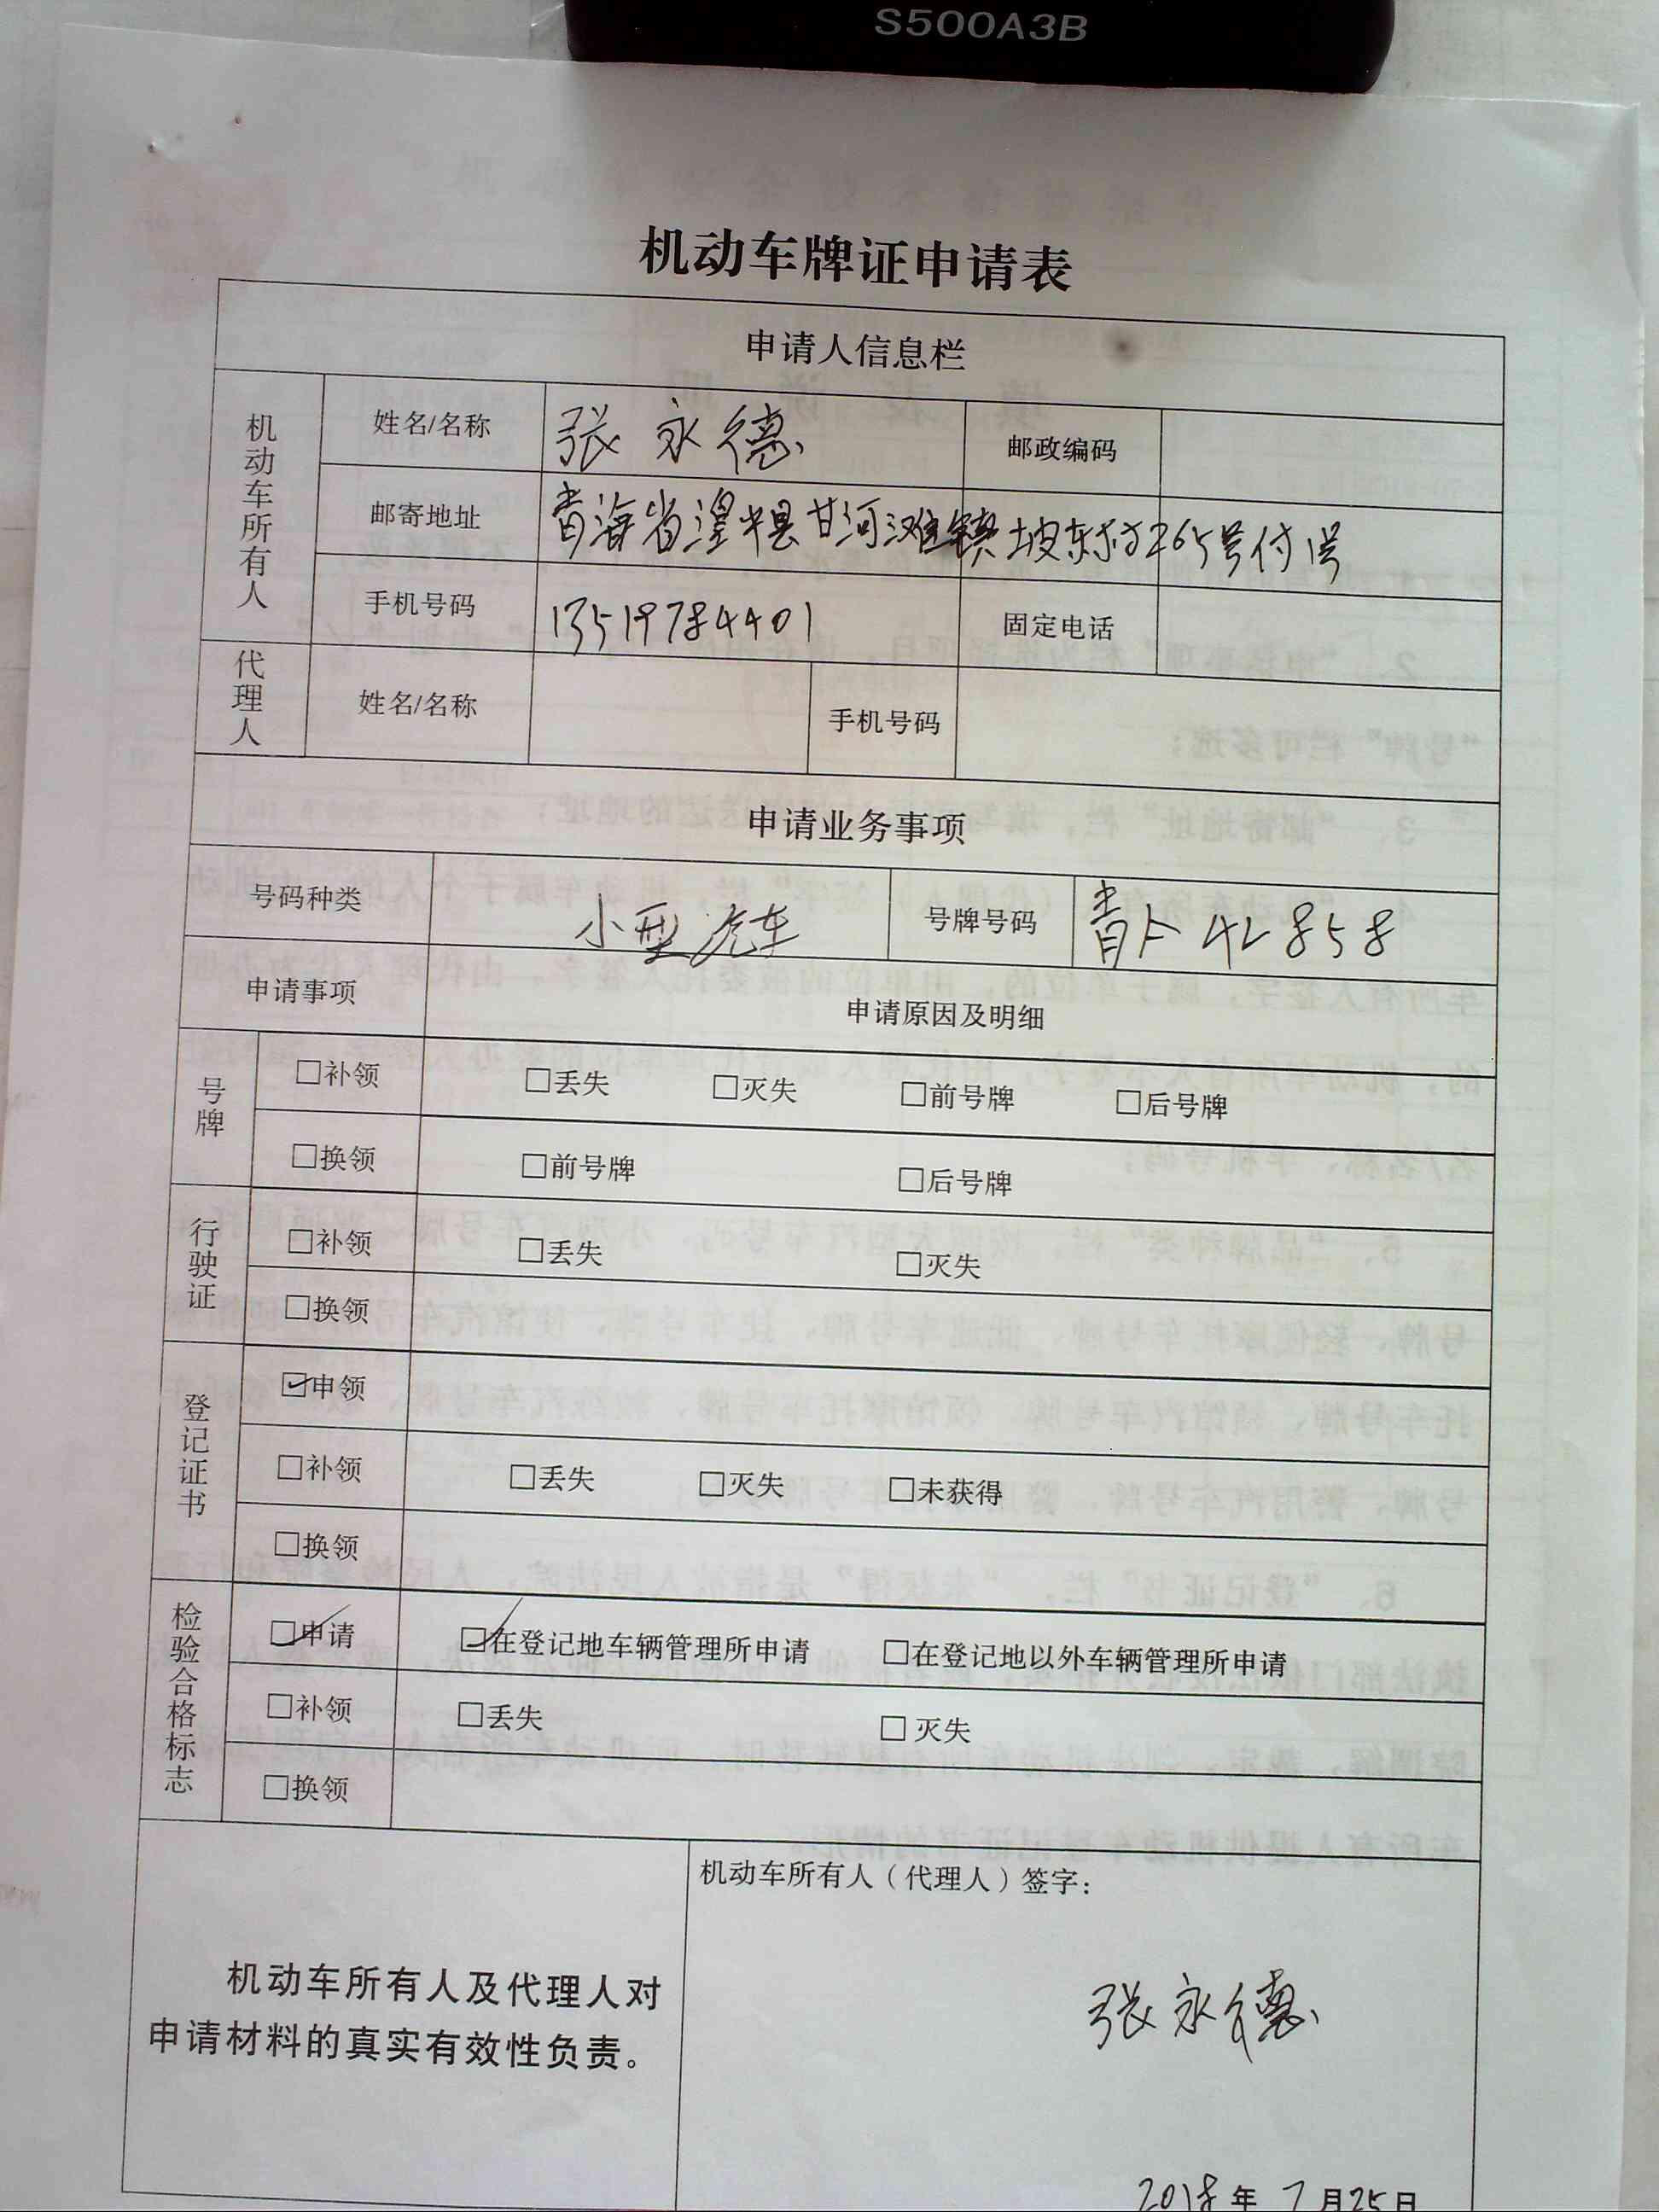 S500A3B
机动车牌证申请表
申请人信息栏
机动车所有人
姓名/名称 张永德 邮政编码
邮寄地址 青海省湟中县甘河滩镇坡东村265号付1号
手机号码 13519784401 固定电话
代理人 姓名/名称 手机号码
申请业务事项
号码种类 小型汽车 号牌号码 青A42858
申请事项 申请原因及明细
号牌
□补领 □丢失 □灭失 □前号牌 □后号牌
□换领 □前号牌 □后号牌
行驶证
□补领 □丢失 □灭失
□换领
登记证书
☑申领
□补领 □丢失 □灭失 □未获得
□换领
检验合格标志
☑申请 ☑在登记地车辆管理所申请 □在登记地以外车辆管理所申请
□补领 □丢失 □灭失
□换领
机动车所有人及代理人对
申请材料的真实有效性负责。
机动车所有人（代理人）签字：
张永德
2018年7月25日